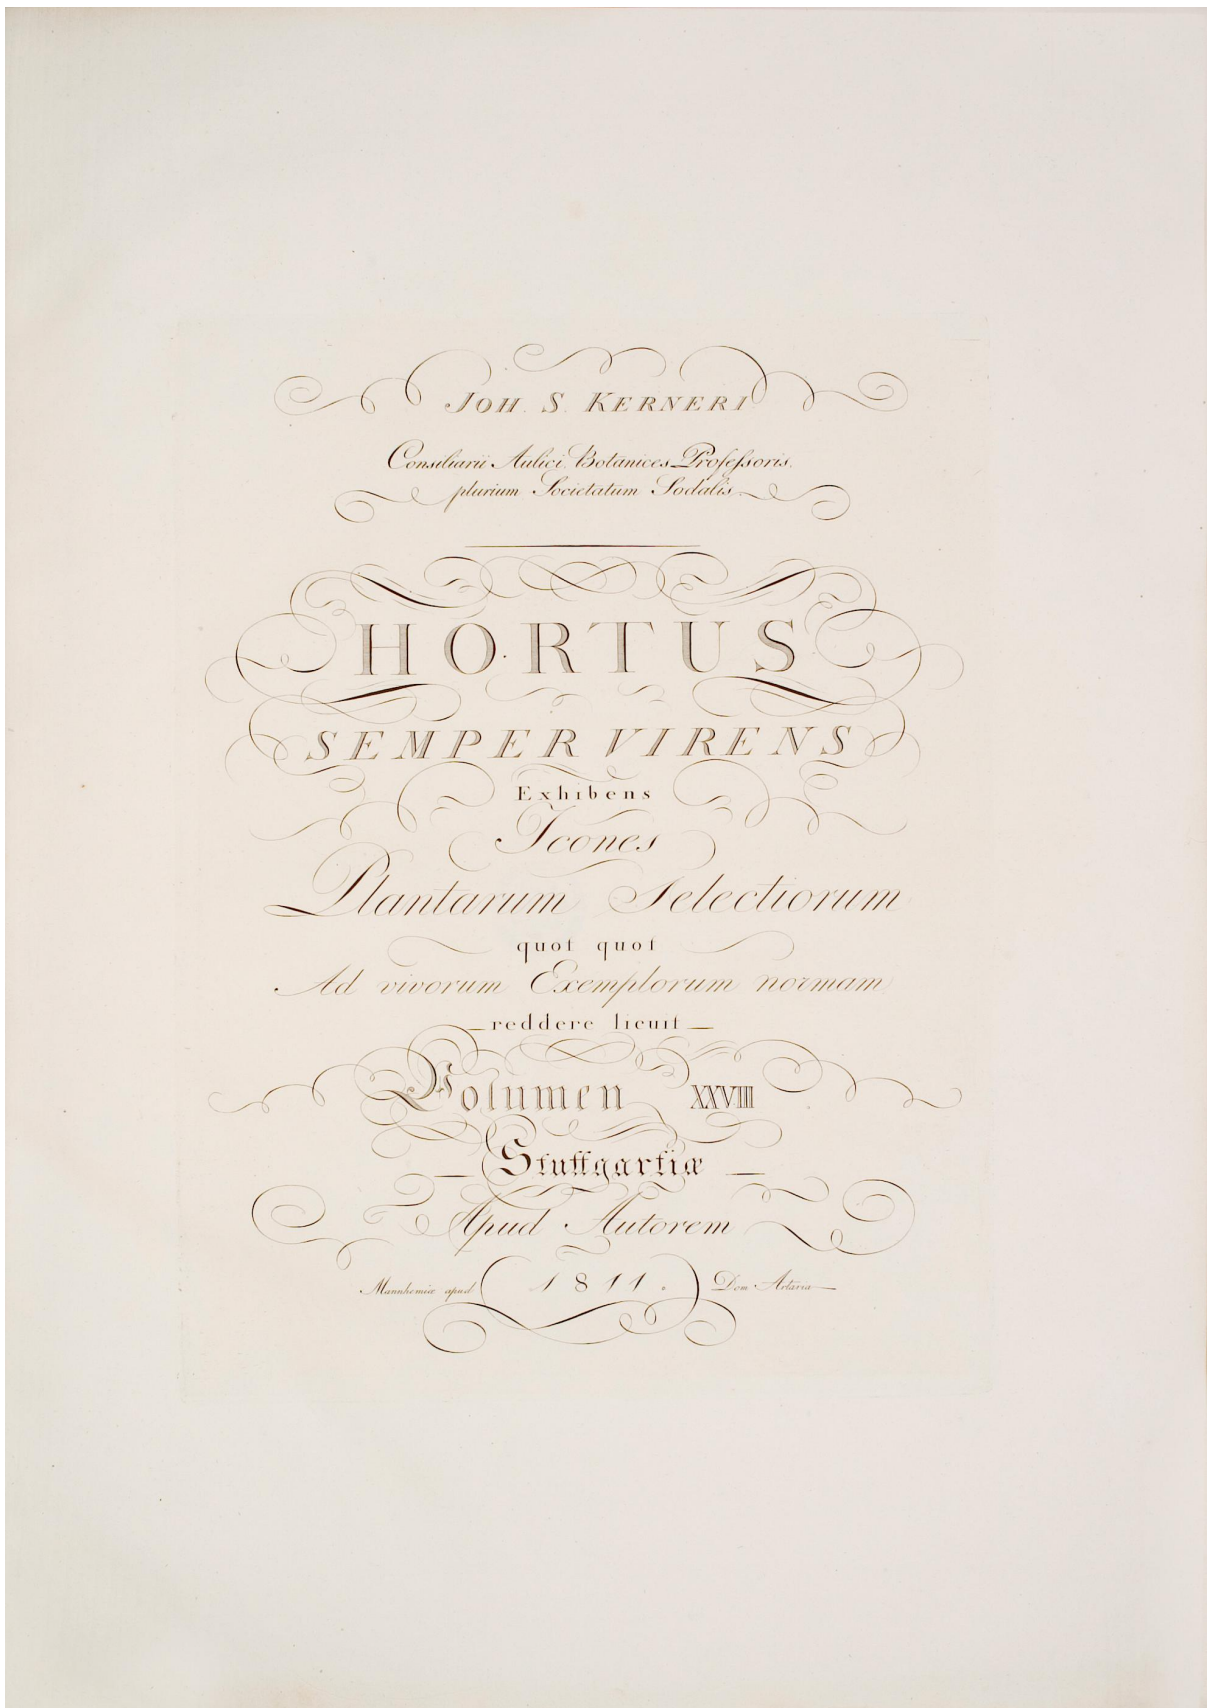 JOH. S. KERNERI
Consiliarii Aulici. Botanices Profeſsoris.
plurium Societatum Sodalis
HORTUS
SEMPER VIRENS
Exhibens
Icones
Plantarum Selectiorum
quot quot
Ad vivorum Exemplorum normam
reddere licuit
Volumen XXVIII
Stuttgartiæ
Apud Autorem
Mannhemiæ apud 1811. Dom Artaria